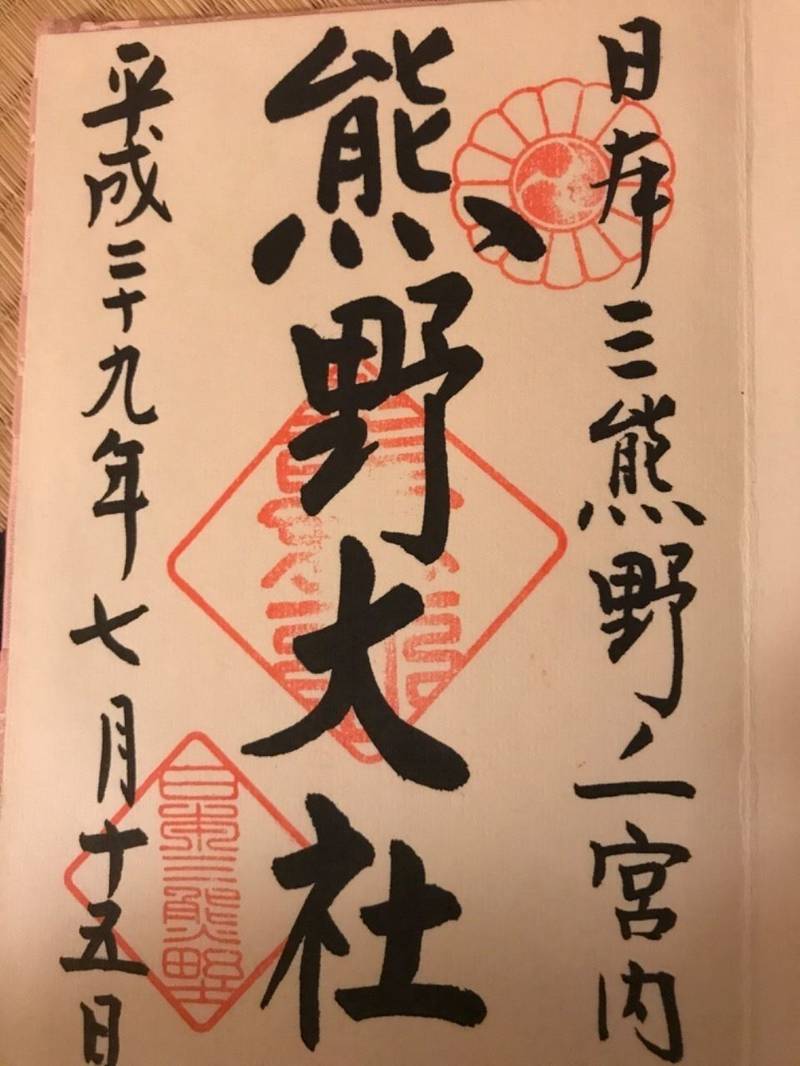 日本三熊野ノ一宮内
熊野大社
平成二十九年七月十五日
日本三熊野